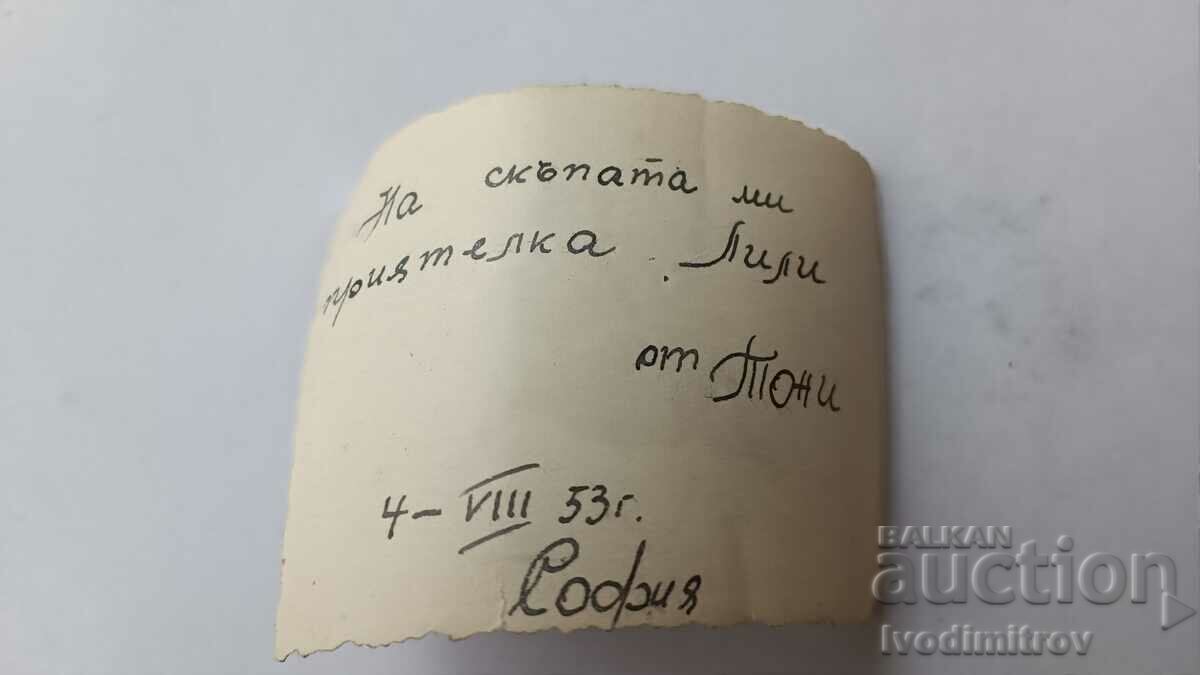 На скъпата ми
приятелка Лили
от Тони
4 – VIII 53 г.
София
BALKAN
auction
Ivodimitrov